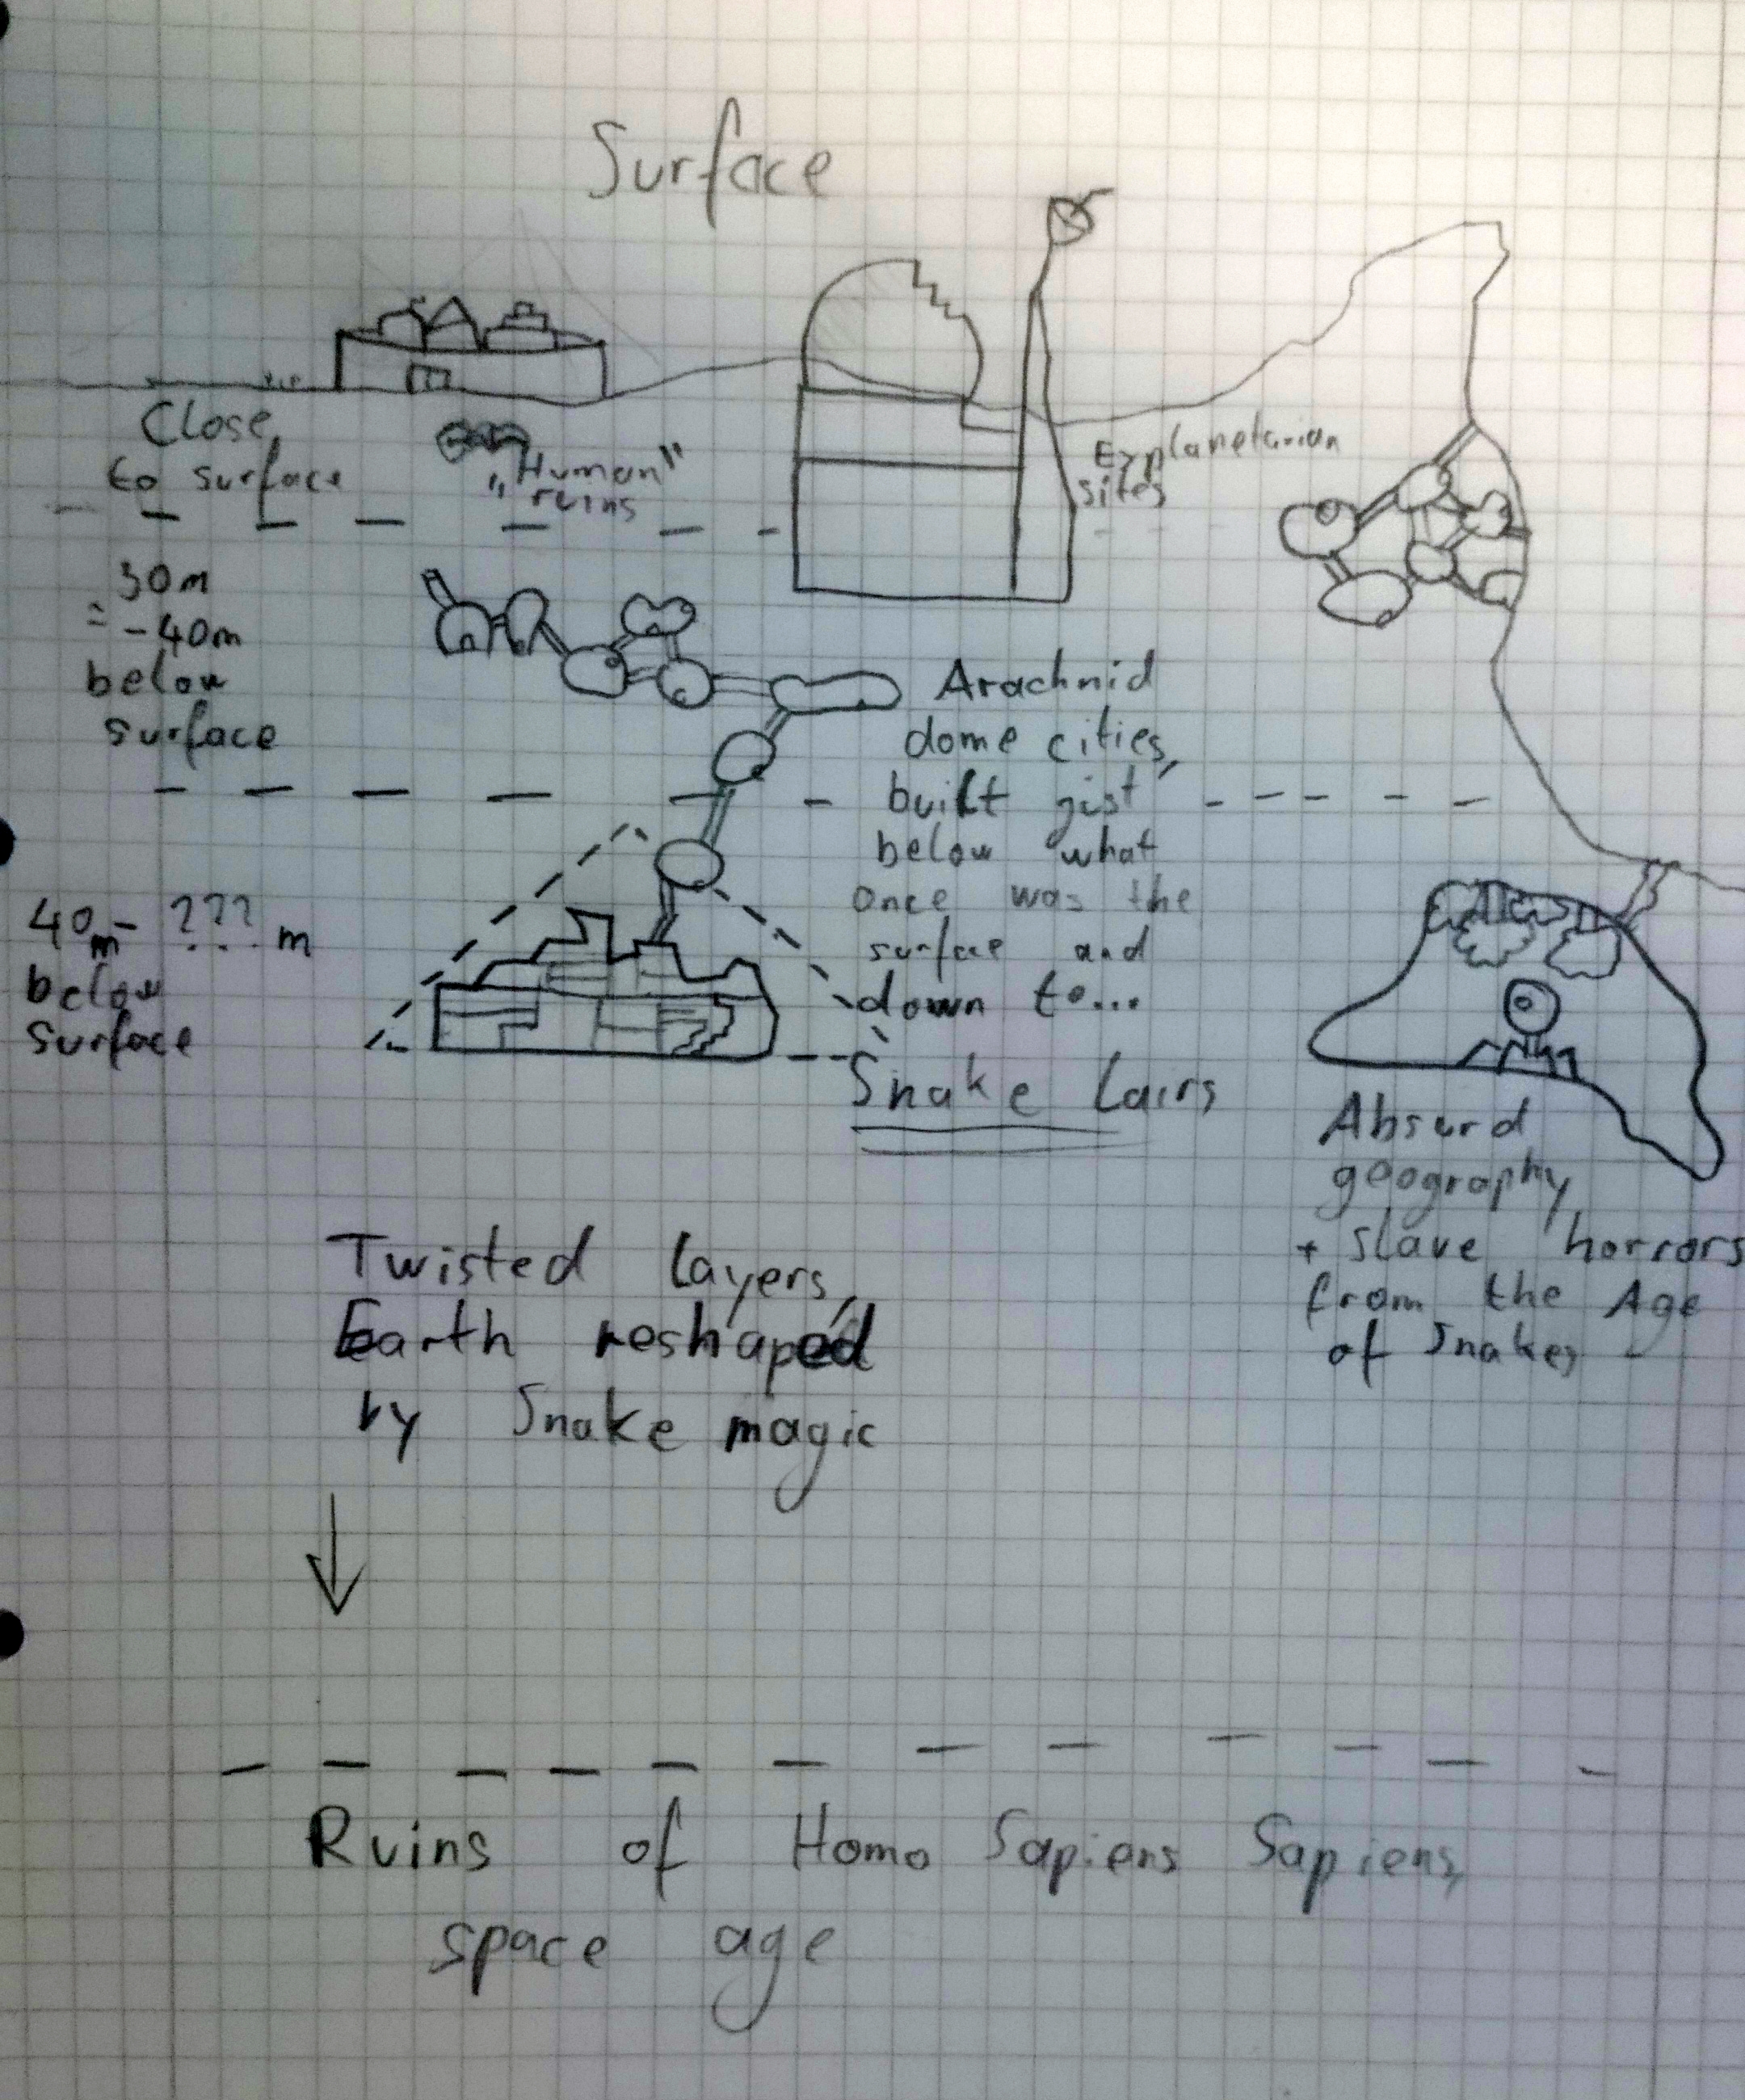 Surface
Close
to surface
„Human"
ruins
Explanetarian
sites
30m
- 40m
below
surface
Arachnid
dome cities,
built just
below what
once was the
surface and
down to...
Snake Lairs
40m - ??? m
below
surface
Absurd
geography
+ slave horrors
from the Age
of Snakes
Twisted layers,
Earth reshaped
by Snake magic
Ruins of Homo Sapiens Sapiens,
space age